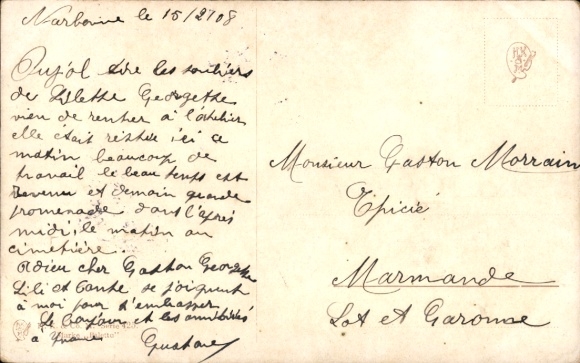 Narbonne le 15/2 08
Pujol tire les souliers
de Lilette Georgette
vien de rentrer à l'atelier
elle était restée ici ce
matin beaucoup de
travail le beau temps est
revenu et demain grande
promenade dans l'après
midi, le matin au
cimetière..
Adieu cher Gaston Georgette
Lili et tante se joignent
à moi pour t'embrasser
le bonjour et les amitiés
à
Gustave
Monsieur Gaston Morrain
Epicié
Marmande
Lot et Garonne
Serie 425